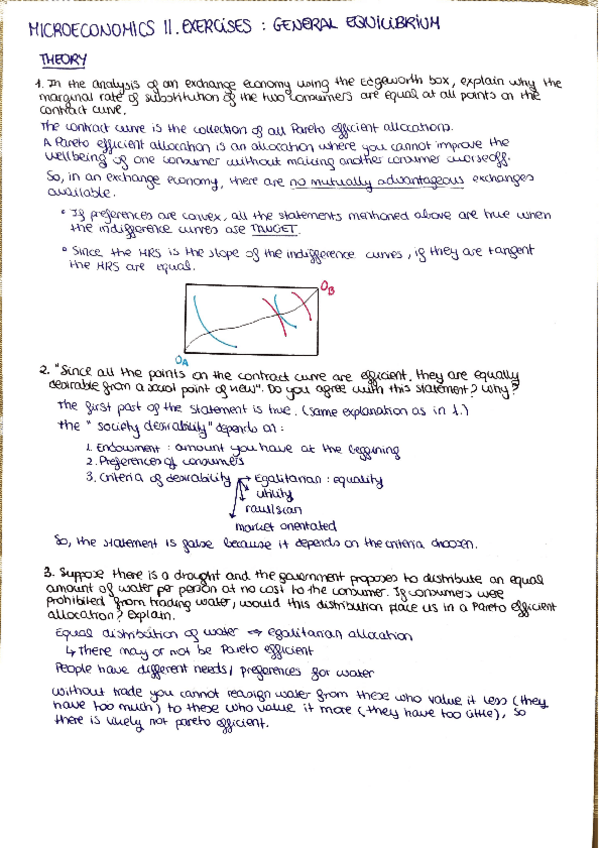 MICROECONOMICS II. EXERCISES : GENERAL EQUILIBRIUM
THEORY
1. In the analysis of an exchange economy using the Edgeworth box, explain why the
marginal rate of substitution of the two consumers are equal at all points on the
contract curve.
The contract curve is the collection of all Pareto efficient allocations.
A Pareto efficient allocation is an allocation where you cannot improve the
wellbeing of one consumer without making another consumer worseoff.
So, in an exchange economy, there are no mutually advantageous exchanges
available.
° If preferences are convex, all the statements mentioned above are true when
the indifference curves are TANGET.
° Since the MRS is the slope of the indifference curves, if they are tangent
the MRS are equal.
OB
OA
2. "Since all the points on the contract curve are efficient, they are equally
desirable from a social point of view". Do you agree with this statement? Why?
The first part of the statement is true. (same explanation as in 1.)
the "society desirability" depends on:
1. Endowment : amount you have at the beggining
2. Preferences of consumers
3. Criteria of desirability → Egalitarian : equality
utility
rawlsian
market orientated
So, the statement is false because it depends on the criteria choosen.
3. Suppose there is a drought and the government proposes to distribute an equal
amount of water per person at no cost to the consumer. If consumers were
prohibited from trading water, would this distribution place us in a Pareto efficient
allocation? Explain.
Equal distribution of water ⇒ egalitarian allocation
↳ There may or not be Pareto efficient
People have different needs/ preferences for water
Without trade you cannot reasign water from these who value it less (they
have too much) to these who value it more (they have too little), so
there is likely not pareto efficient.